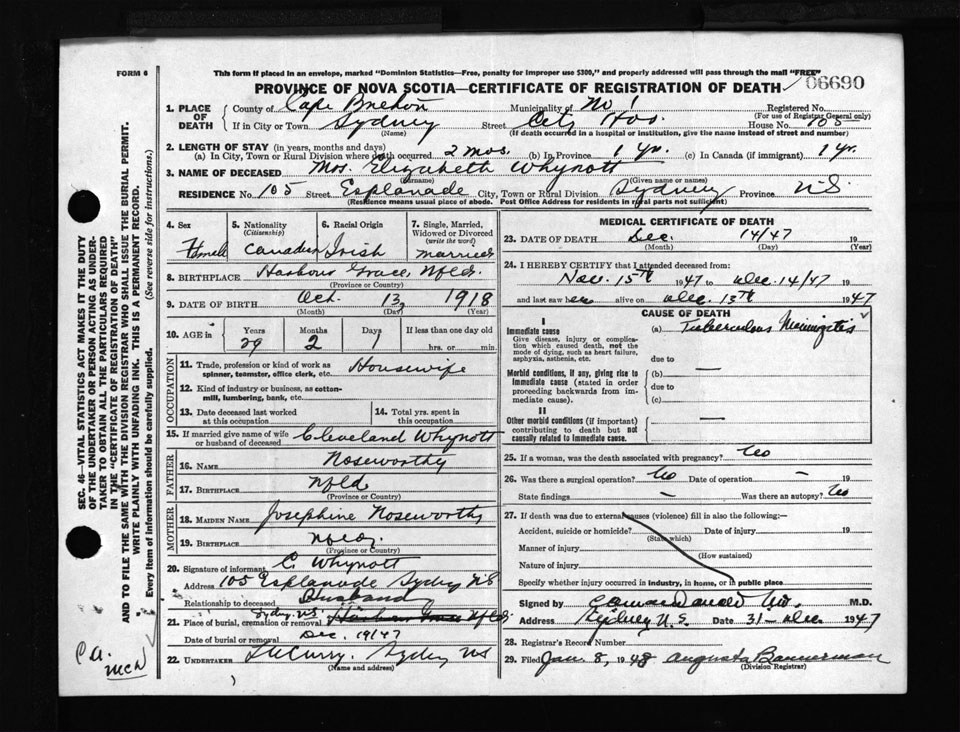 FORM 6
This form if placed in an envelope, marked "Dominion Statistics—Free, penalty for improper use $300," and properly addressed will pass through the mail "FREE"
06690
PROVINCE OF NOVA SCOTIA—CERTIFICATE OF REGISTRATION OF DEATH
1. PLACE OF DEATH County of Cape Breton Municipality of No 1 Registered No.
(For use of Registrar General only)
If in City or Town Sydney Street City Hos. House No. 105
(Name) (If death occurred in a hospital or institution, give the name instead of street and number)
2. LENGTH OF STAY (in years, months and days)
(a) In City, Town or Rural Division where death occurred 2 mos. (b) In Province 1 yr. (c) In Canada (if immigrant) 1 yr.
3. NAME OF DECEASED Mrs. Elizabeth Whynott
(Surname) (Given name or names)
RESIDENCE No. 105 Street Esplanade City, Town or Rural Division Sydney Province N.S.
(Residence means usual place of abode. Post Office Address for residents in rural parts not sufficient)
4. Sex 5. Nationality (Citizenship) 6. Racial Origin 7. Single, Married, Widowed or Divorced (write the word)
Canadian Irish married
8. BIRTHPLACE Harbour Grace, Nfld.
(Province or Country)
9. DATE OF BIRTH Oct. 13, 1918
(Month) (Day) (Year)
10. AGE in Years Months Days If less than one day old
29 2 1 hrs. or min.
OCCUPATION
11. Trade, profession or kind of work as spinner, teamster, office clerk, etc. Housewife
12. Kind of industry or business, as cotton-mill, lumbering, bank, etc.
13. Date deceased last worked at this occupation 14. Total yrs. spent in this occupation
15. If married give name of wife or husband of deceased Cleveland Whynott
FATHER
16. NAME Noseworthy
17. BIRTHPLACE Nfld
(Province or Country)
MOTHER
18. MAIDEN NAME Josephine Noseworthy
19. BIRTHPLACE Nfld.
(Province or Country)
20. Signature of informant C. Whynott
Address 105 Esplanade Sydney N.S
Relationship to deceased Husband
21. Place of burial, cremation or removal Sydney, N.S. Harbour Grace Nfld.
Date of burial or removal Dec. 19/47
22. UNDERTAKER Sydney N.S
(Name and address)
MEDICAL CERTIFICATE OF DEATH
23. DATE OF DEATH Dec. 14/47 19
(Month) (Day) (Year)
24. I HEREBY CERTIFY that I attended deceased from:
Nov. 15th 1947 to Dec. 14/47
and last saw her alive on Dec. 13th 1947
CAUSE OF DEATH
I
Immediate cause (a) Tuberculous Meningitis
Give disease, injury or complication which caused death, not the mode of dying, such as heart failure, asphyxia, asthenia, etc. due to
Morbid conditions, if any, giving rise to immediate cause (stated in order proceeding backwards from immediate cause). (b) —
due to
(c)
II
Other morbid conditions (if important) contributing to death but not causally related to immediate cause. —
25. If a woman, was the death associated with pregnancy? No
26. Was there a surgical operation? No Date of operation — 19
State findings — Was there an autopsy? No
27. If death was due to external causes (violence) fill in also the following:—
Accident, suicide or homicide? Date of injury 19
(State which)
Manner of injury
(How sustained)
Nature of injury
Specify whether injury occurred in industry, in home, or in public place
Signed by M.D.
Address Sydney N.S. Date 31 - Dec. 1947
28. Registrar's Record Number
29. Filed Jan. 8, 1948 Augusta Bannerman
(Division Registrar)
SEC. 46—VITAL STATISTICS ACT MAKES IT THE DUTY
OF THE UNDERTAKER OR PERSON ACTING AS UNDER-
TAKER TO OBTAIN ALL THE PARTICULARS REQUIRED
IN THE "CERTIFICATE OF REGISTRATION OF DEATH"
AND TO FILE THE SAME WITH THE DIVISION REGISTRAR WHO SHALL ISSUE THE BURIAL PERMIT.
WRITE PLAINLY WITH UNFADING INK. THIS IS A PERMANENT RECORD.
Every item of information should be carefully supplied. (See reverse side for instructions.)